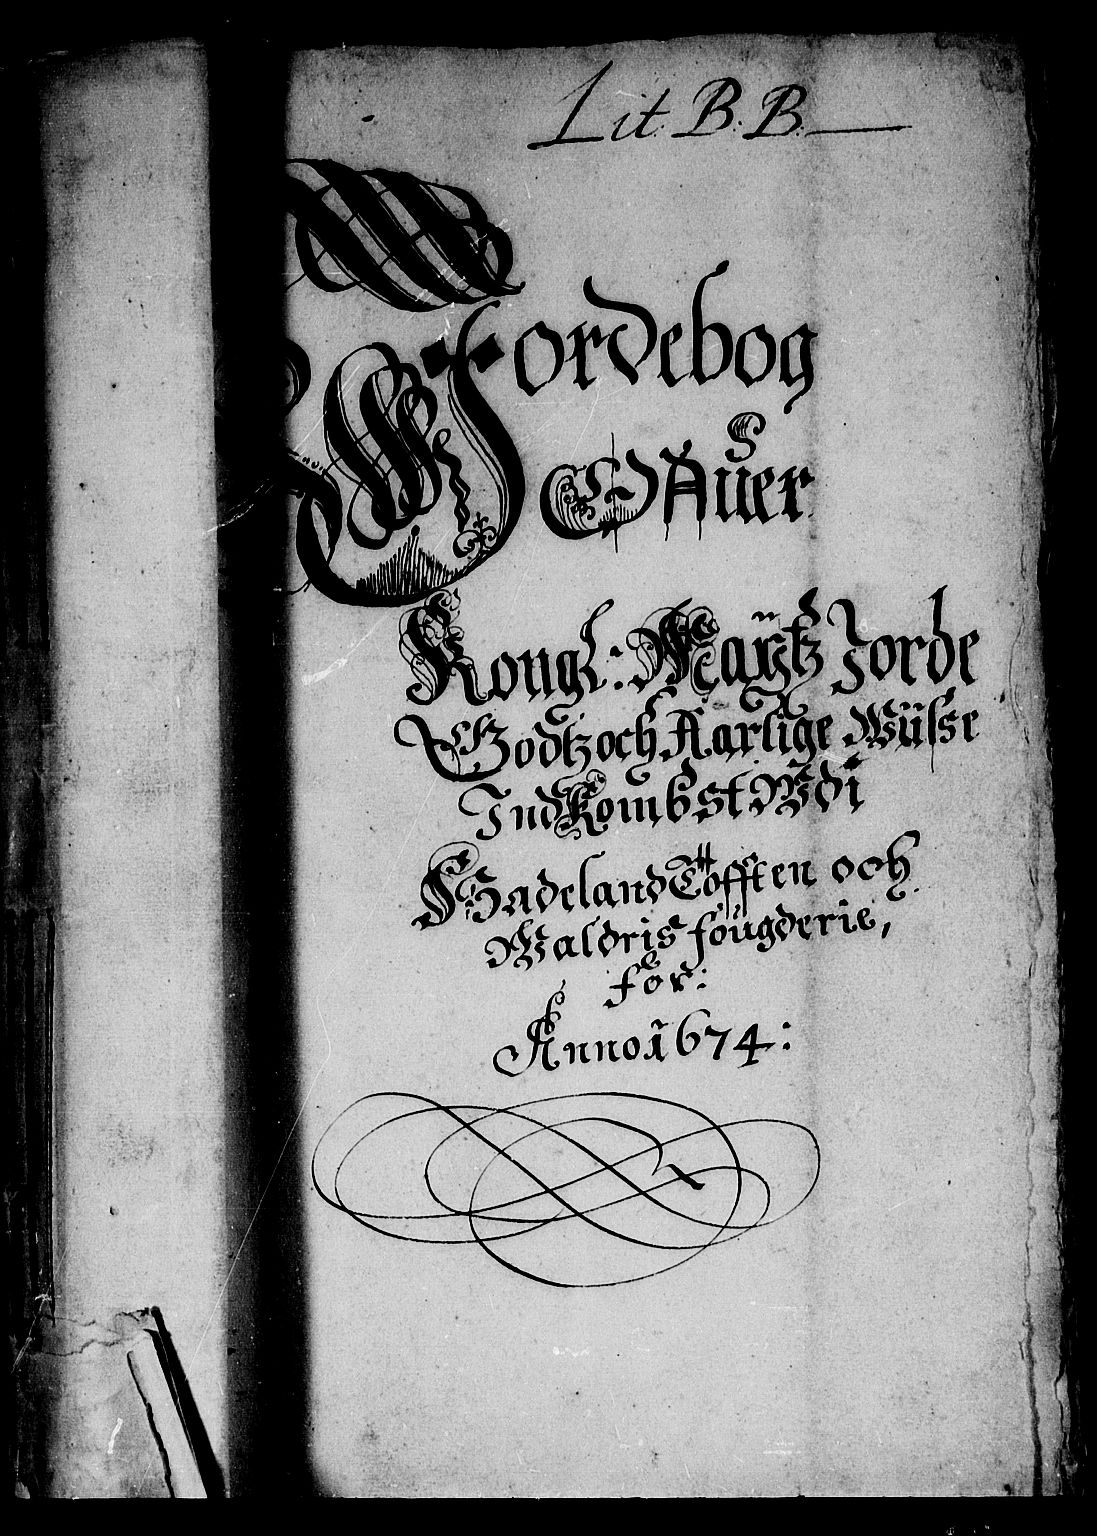 Lit: B: B:
Jordebog
Offuer
Kongl: Maÿtz Jorde
Godtz och Aarlige Wüsse
Indkombst Udi
Hadeland Tofften och
Waldris fougderie,
for:
Anno 1674: